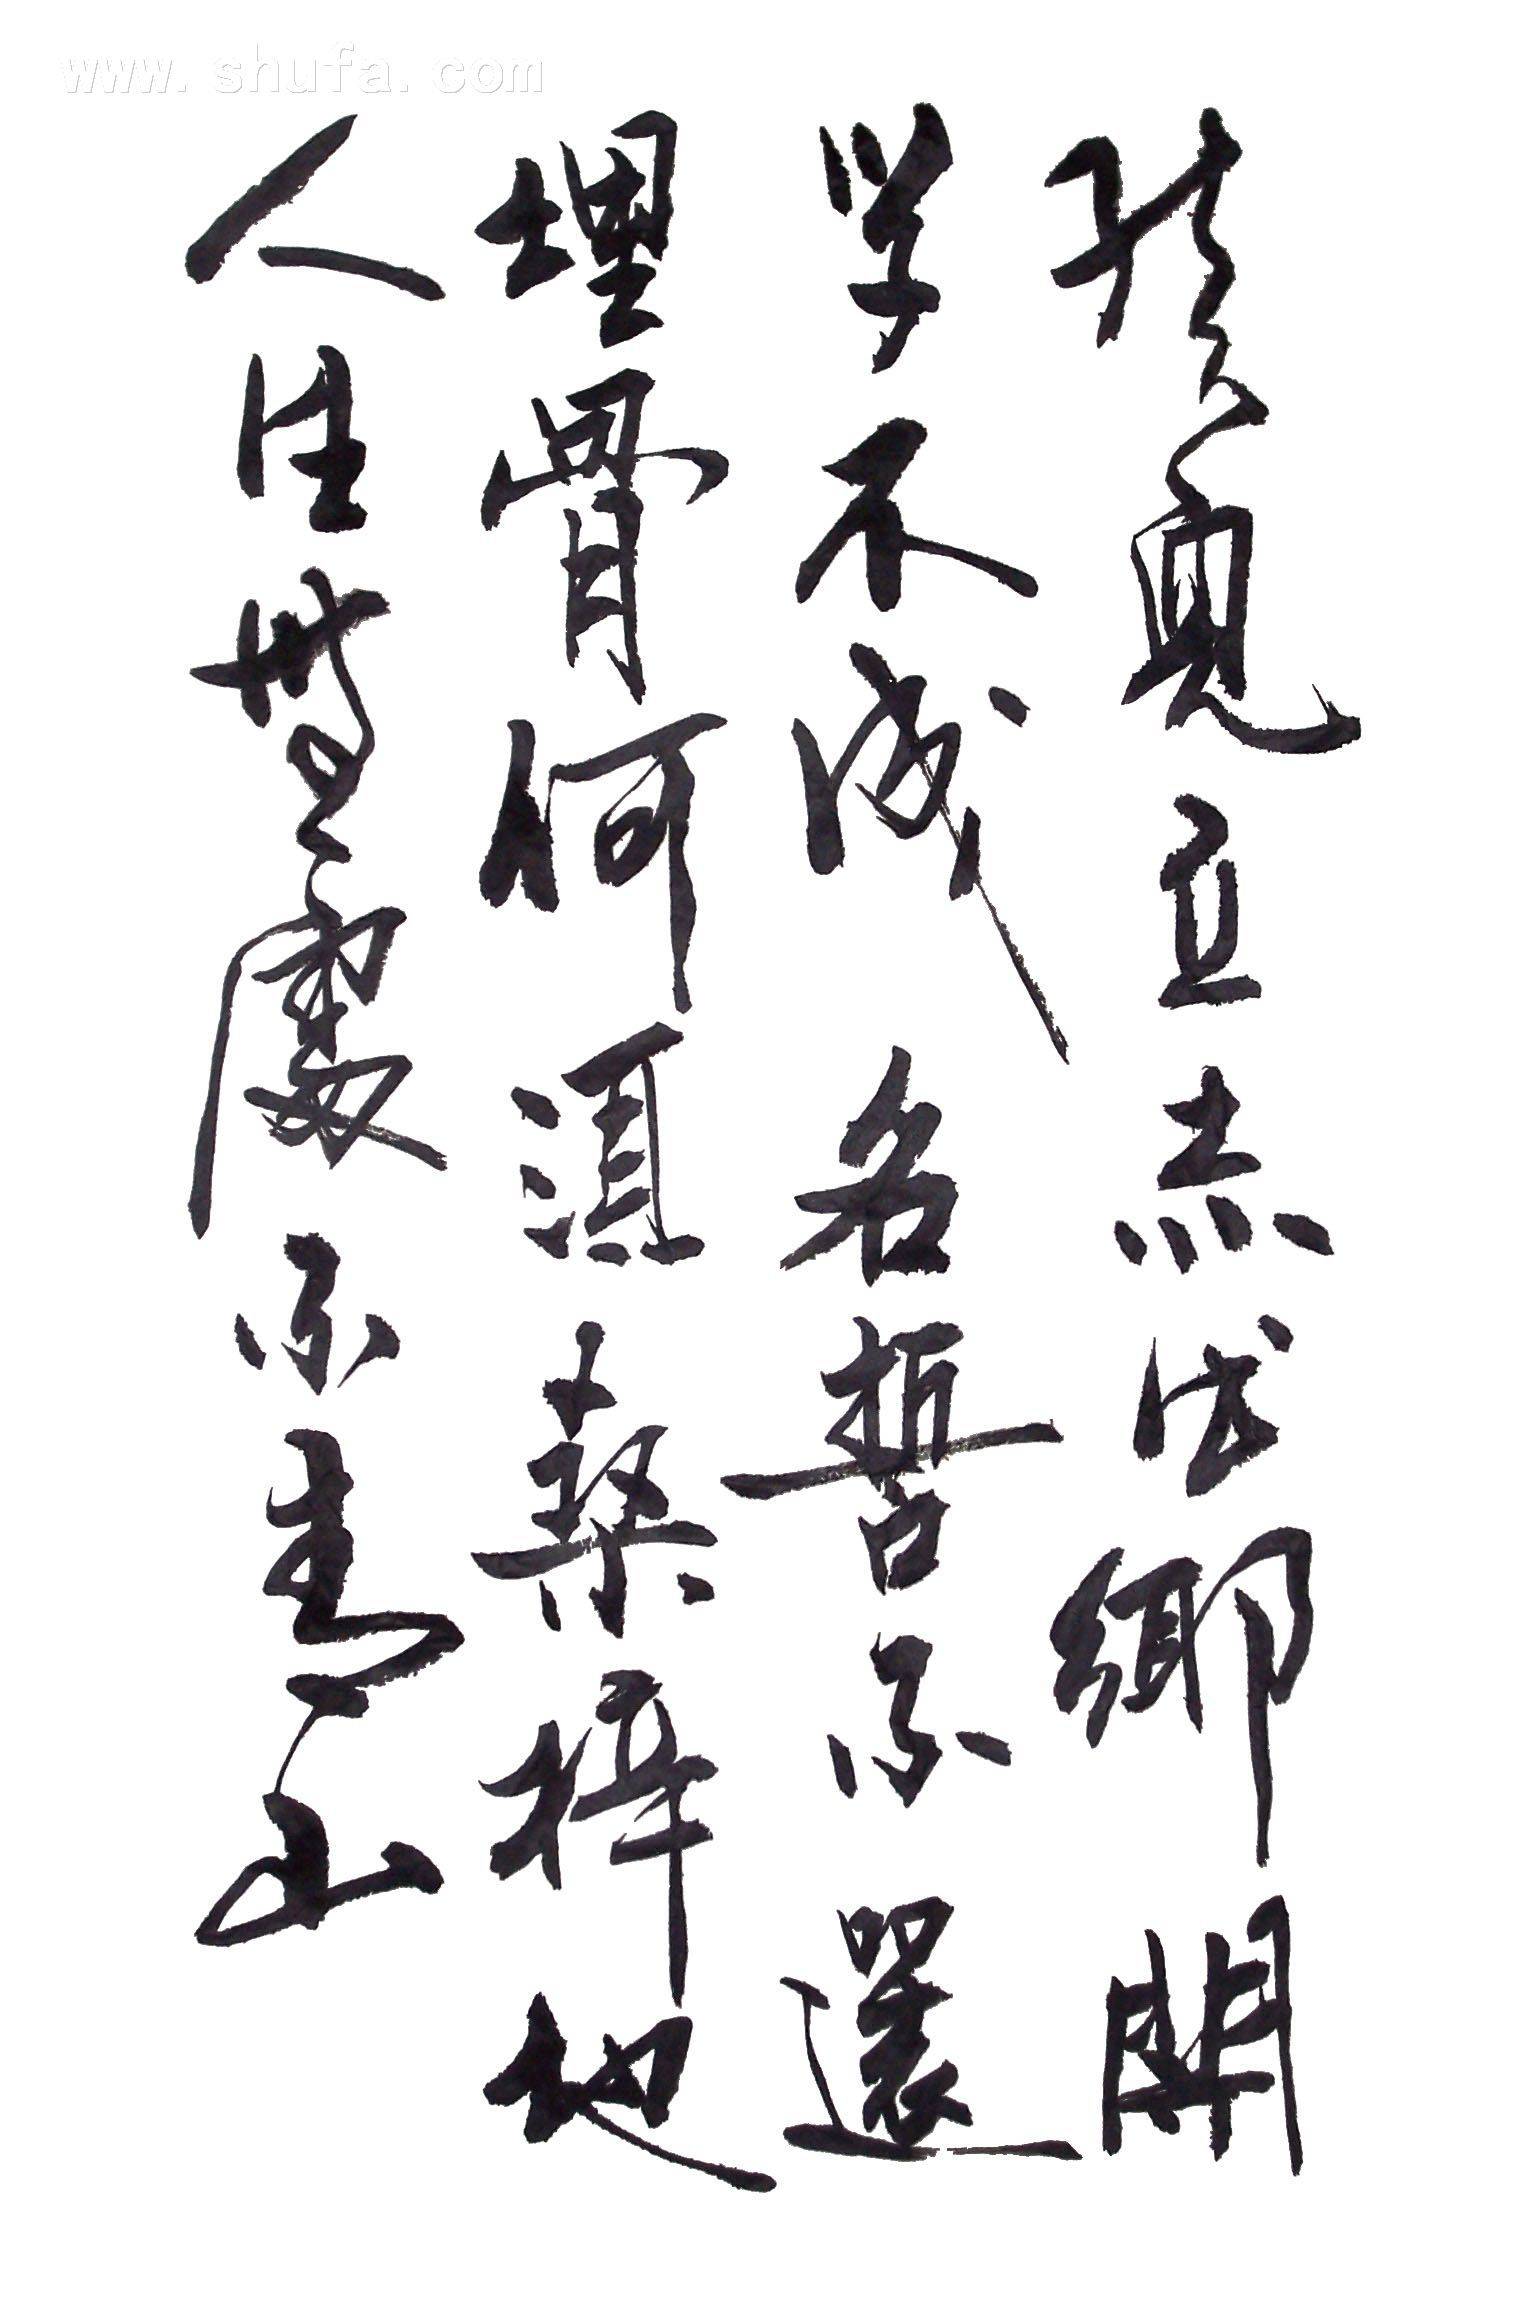 www.shufa.com
孩兒立志出鄉關
学不成名誓不還
埋骨何須桑梓地
人生無處不青山